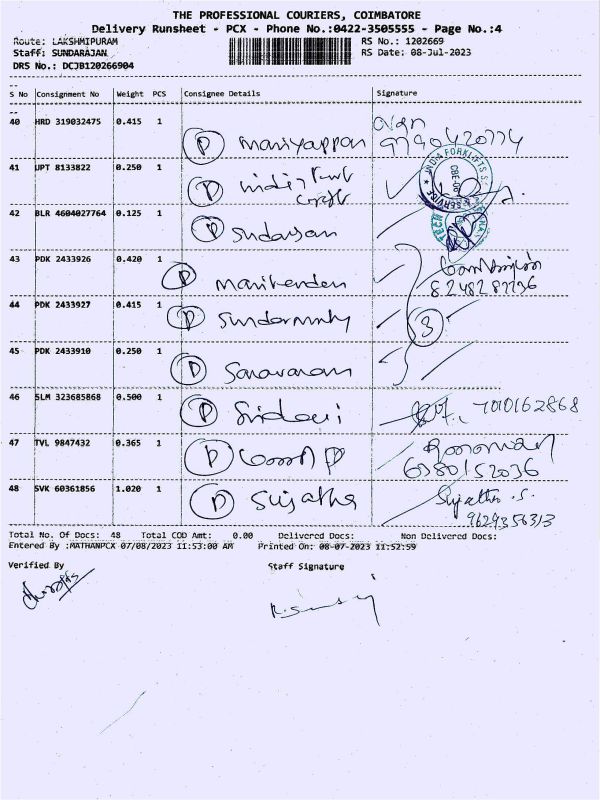 THE PROFESSIONAL COURIERS, COIMBATORE
Delivery Runsheet - PCX - Phone No.:0422-3505555 - Page No.:4
Route: LAKSHMIPURAM RS No.: 1202669
Staff: SUNDARAJAN RS Date: 08-Jul-2023
DRS No.: DCJB120266904
S No Consignment No Weight PCS Consignee Details Signature
40 HRD 319032475 0.415 1
D Mariyappan
41 UPT 8133822 0.250 1
D
INDIA FORKLIFTS
42 BLR 4604027764 0.125 1
D Sundarsan
43 PDK 2433926 0.420 1
D Manikenden
44 PDK 2433927 0.415 1
D 3
45 PDK 2433910 0.250 1
D Saravanan
46 SLM 323685868 0.500 1
D Sridevi 7010162868
47 TVL 9847432 0.365 1
D 6380152036
48 SVK 60361856 1.020 1
D Sujatha Sujatha .S.
Total No. Of Docs: 48 Total COD Amt: 0.00 Delivered Docs: Non Delivered Docs:
Entered By :MATHANPCX 07/08/2023 11:53:00 AM Printed On: 08-07-2023 11:52:59
Verified By Staff Signature